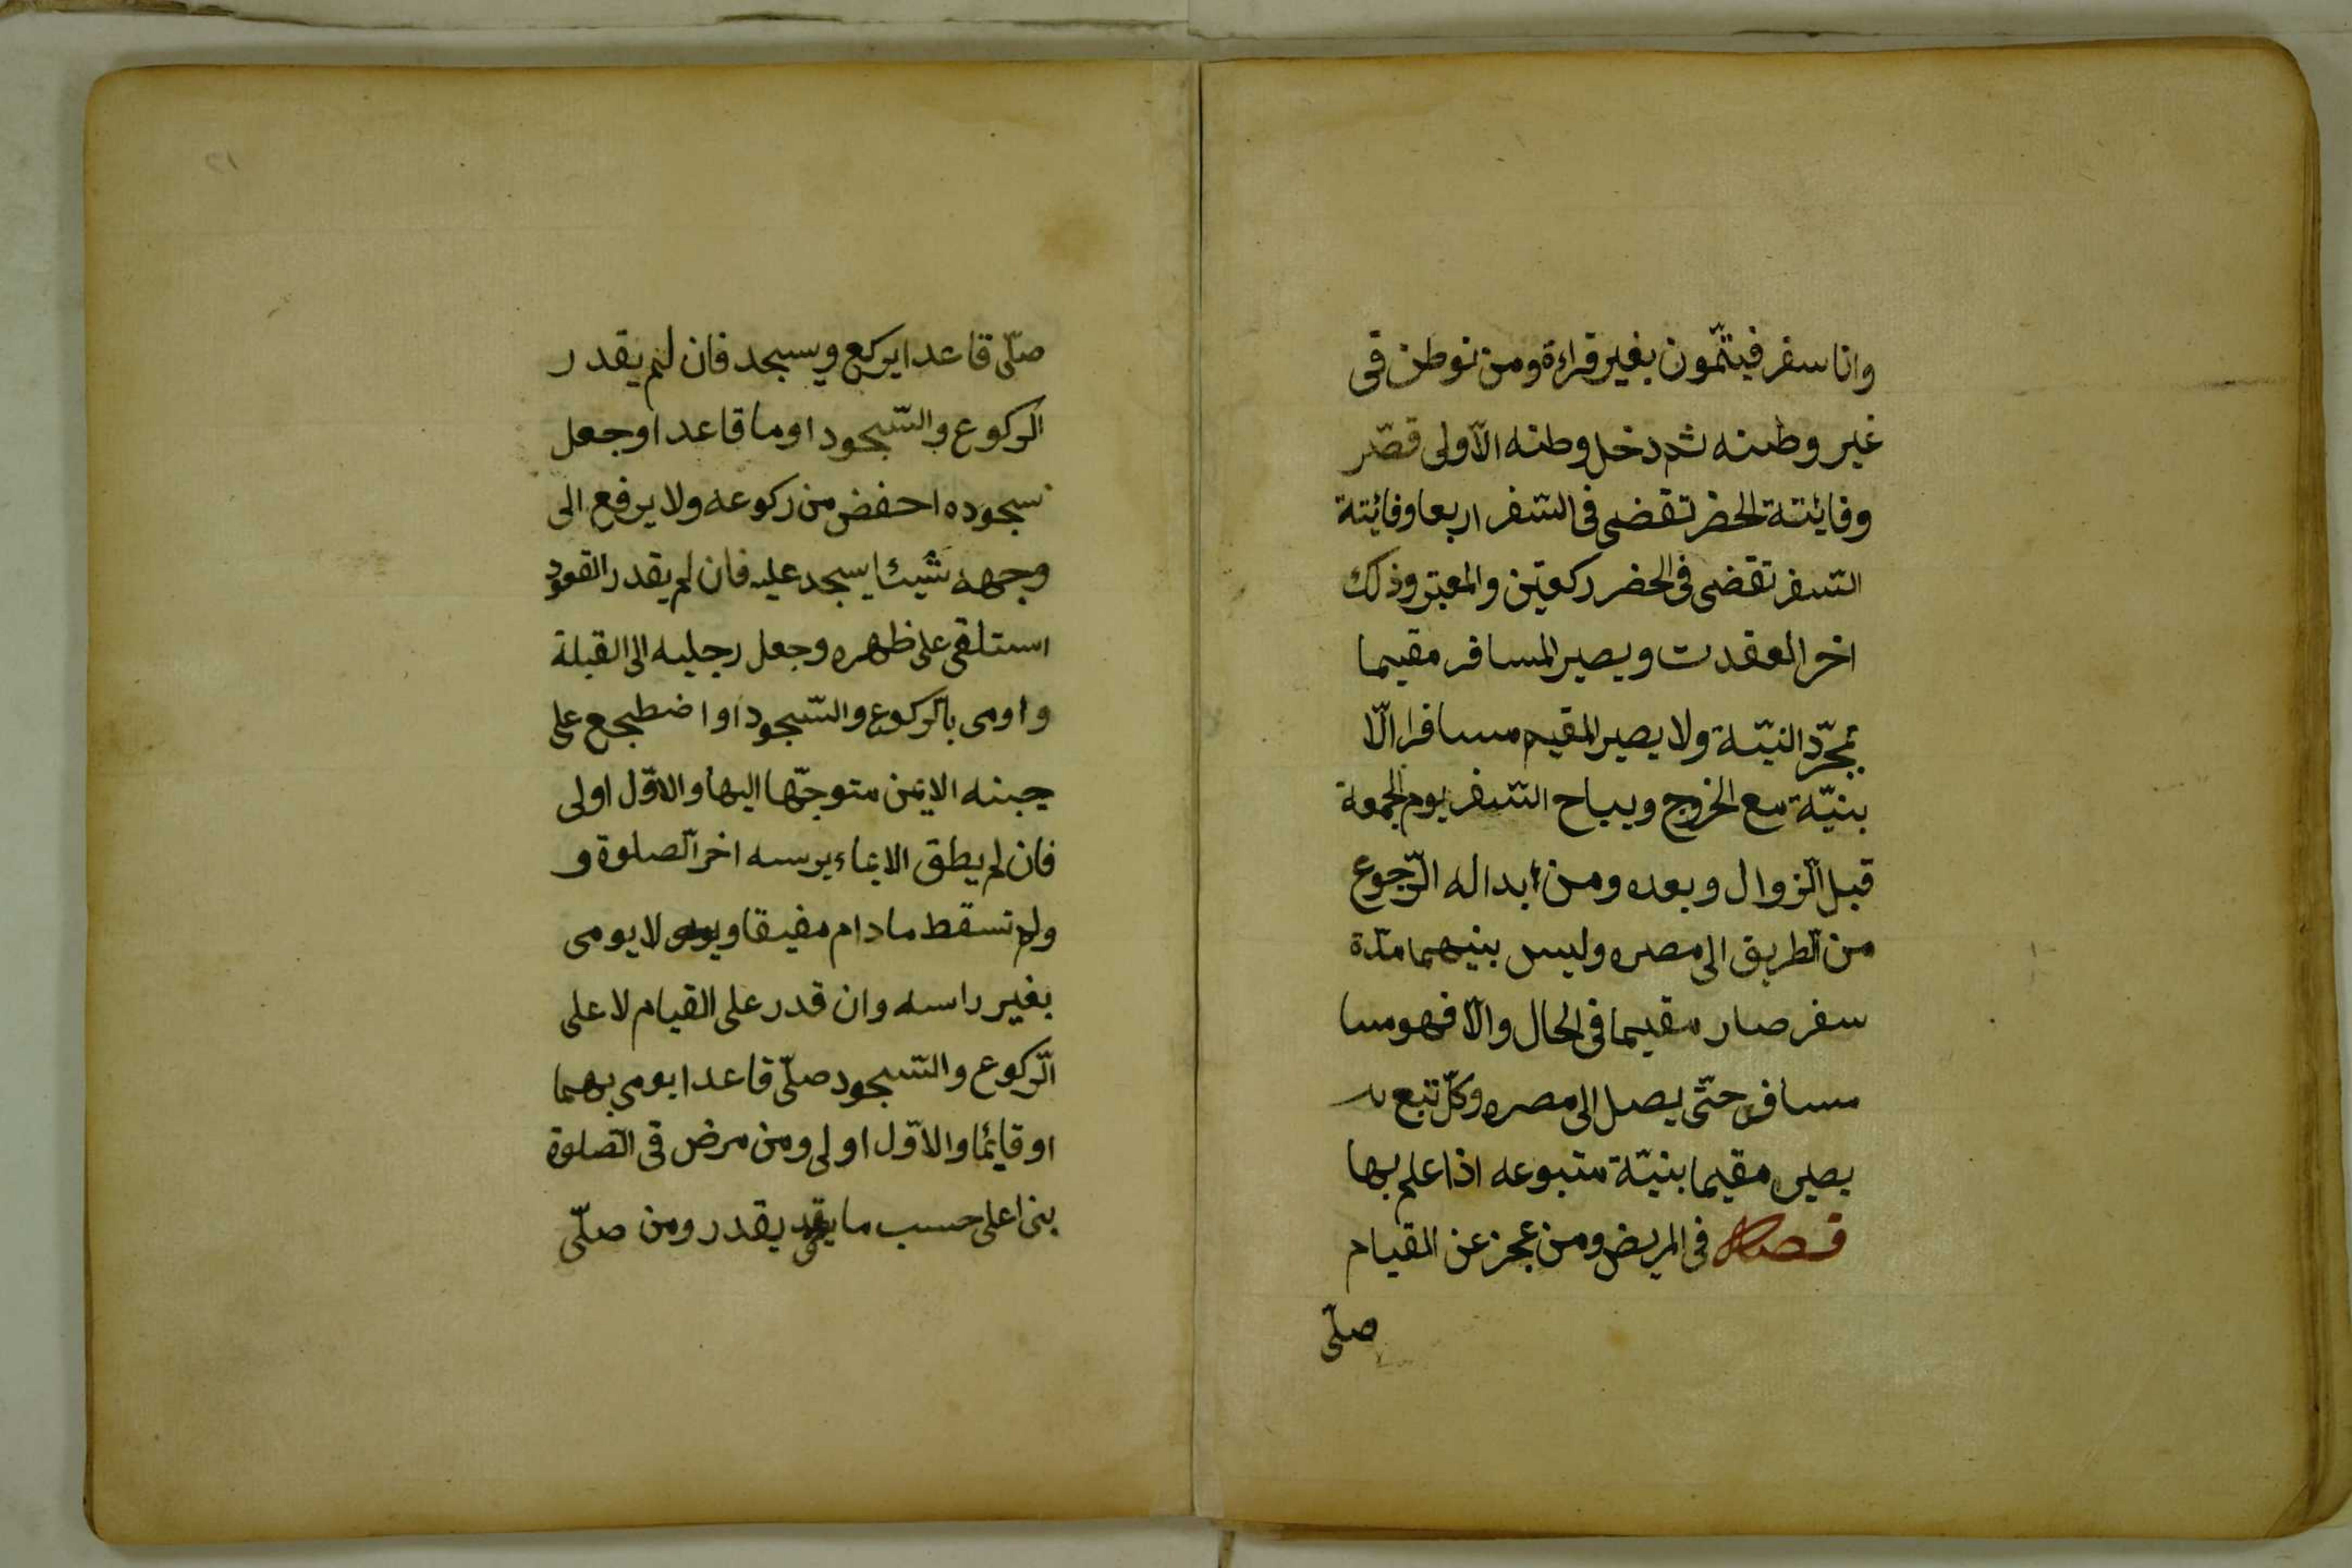 وانا سفر فيتمّون بغير قراءة ومن توطن فى
غير وطنه ثم دخل وطنه الاولى قصّر
وفائتة الحضر تقضى فى السّفر اربعا وفائتة
السّفر تقضى فى الحضر ركعتين والمعتبر وذلك
اخر العقدت ويصير المسافر مقيما
بمجرّد النيّة ولا يصير المقيم مسافرا الّا
بنيّة مع الخروج ويباح السّفر يوم الجمعة
قبل الزّوال وبعده ومن بدا له الرّجوع
من الطّريق الى مصره وليس بينهما مدّة
سفر صار مقيما فى الحال والّا فهو مسا
مسافر حتّى يصل الى مصره وكلّ تبع
يصير مقيما بنيّة متبوعه اذا علم بها
فصل فى المريض ومن عجز عن القيام
صلّى
٢١
صلّى قاعدا يركع ويسجد فان لم يقدر
الركوع والسّجود اوما قاعدا وجعل
سجوده احفض من ركوعه ولا يرفع الى
وجهه شيئا يسجد عليه فان لم يقدر القعود
استلقى على ظهره وجعل رجليه الى القبلة
واومى بالركوع والسّجود او اضطجع على
جبنه الايمن متوجّها اليها والاوّل اولى
فان لم يطق الايماء برسه اخر الصلوة و
ولم تسقط مادام مفيقا ولا يومى
بغير راسه وان قدر على القيام لا على
الرّكوع والسّجود صلّى قاعدا يومى بهما
او قايما والاوّل اولى ومن مرض فى الصّلوة
بنا على حسب ما يقدر ومن صلّى